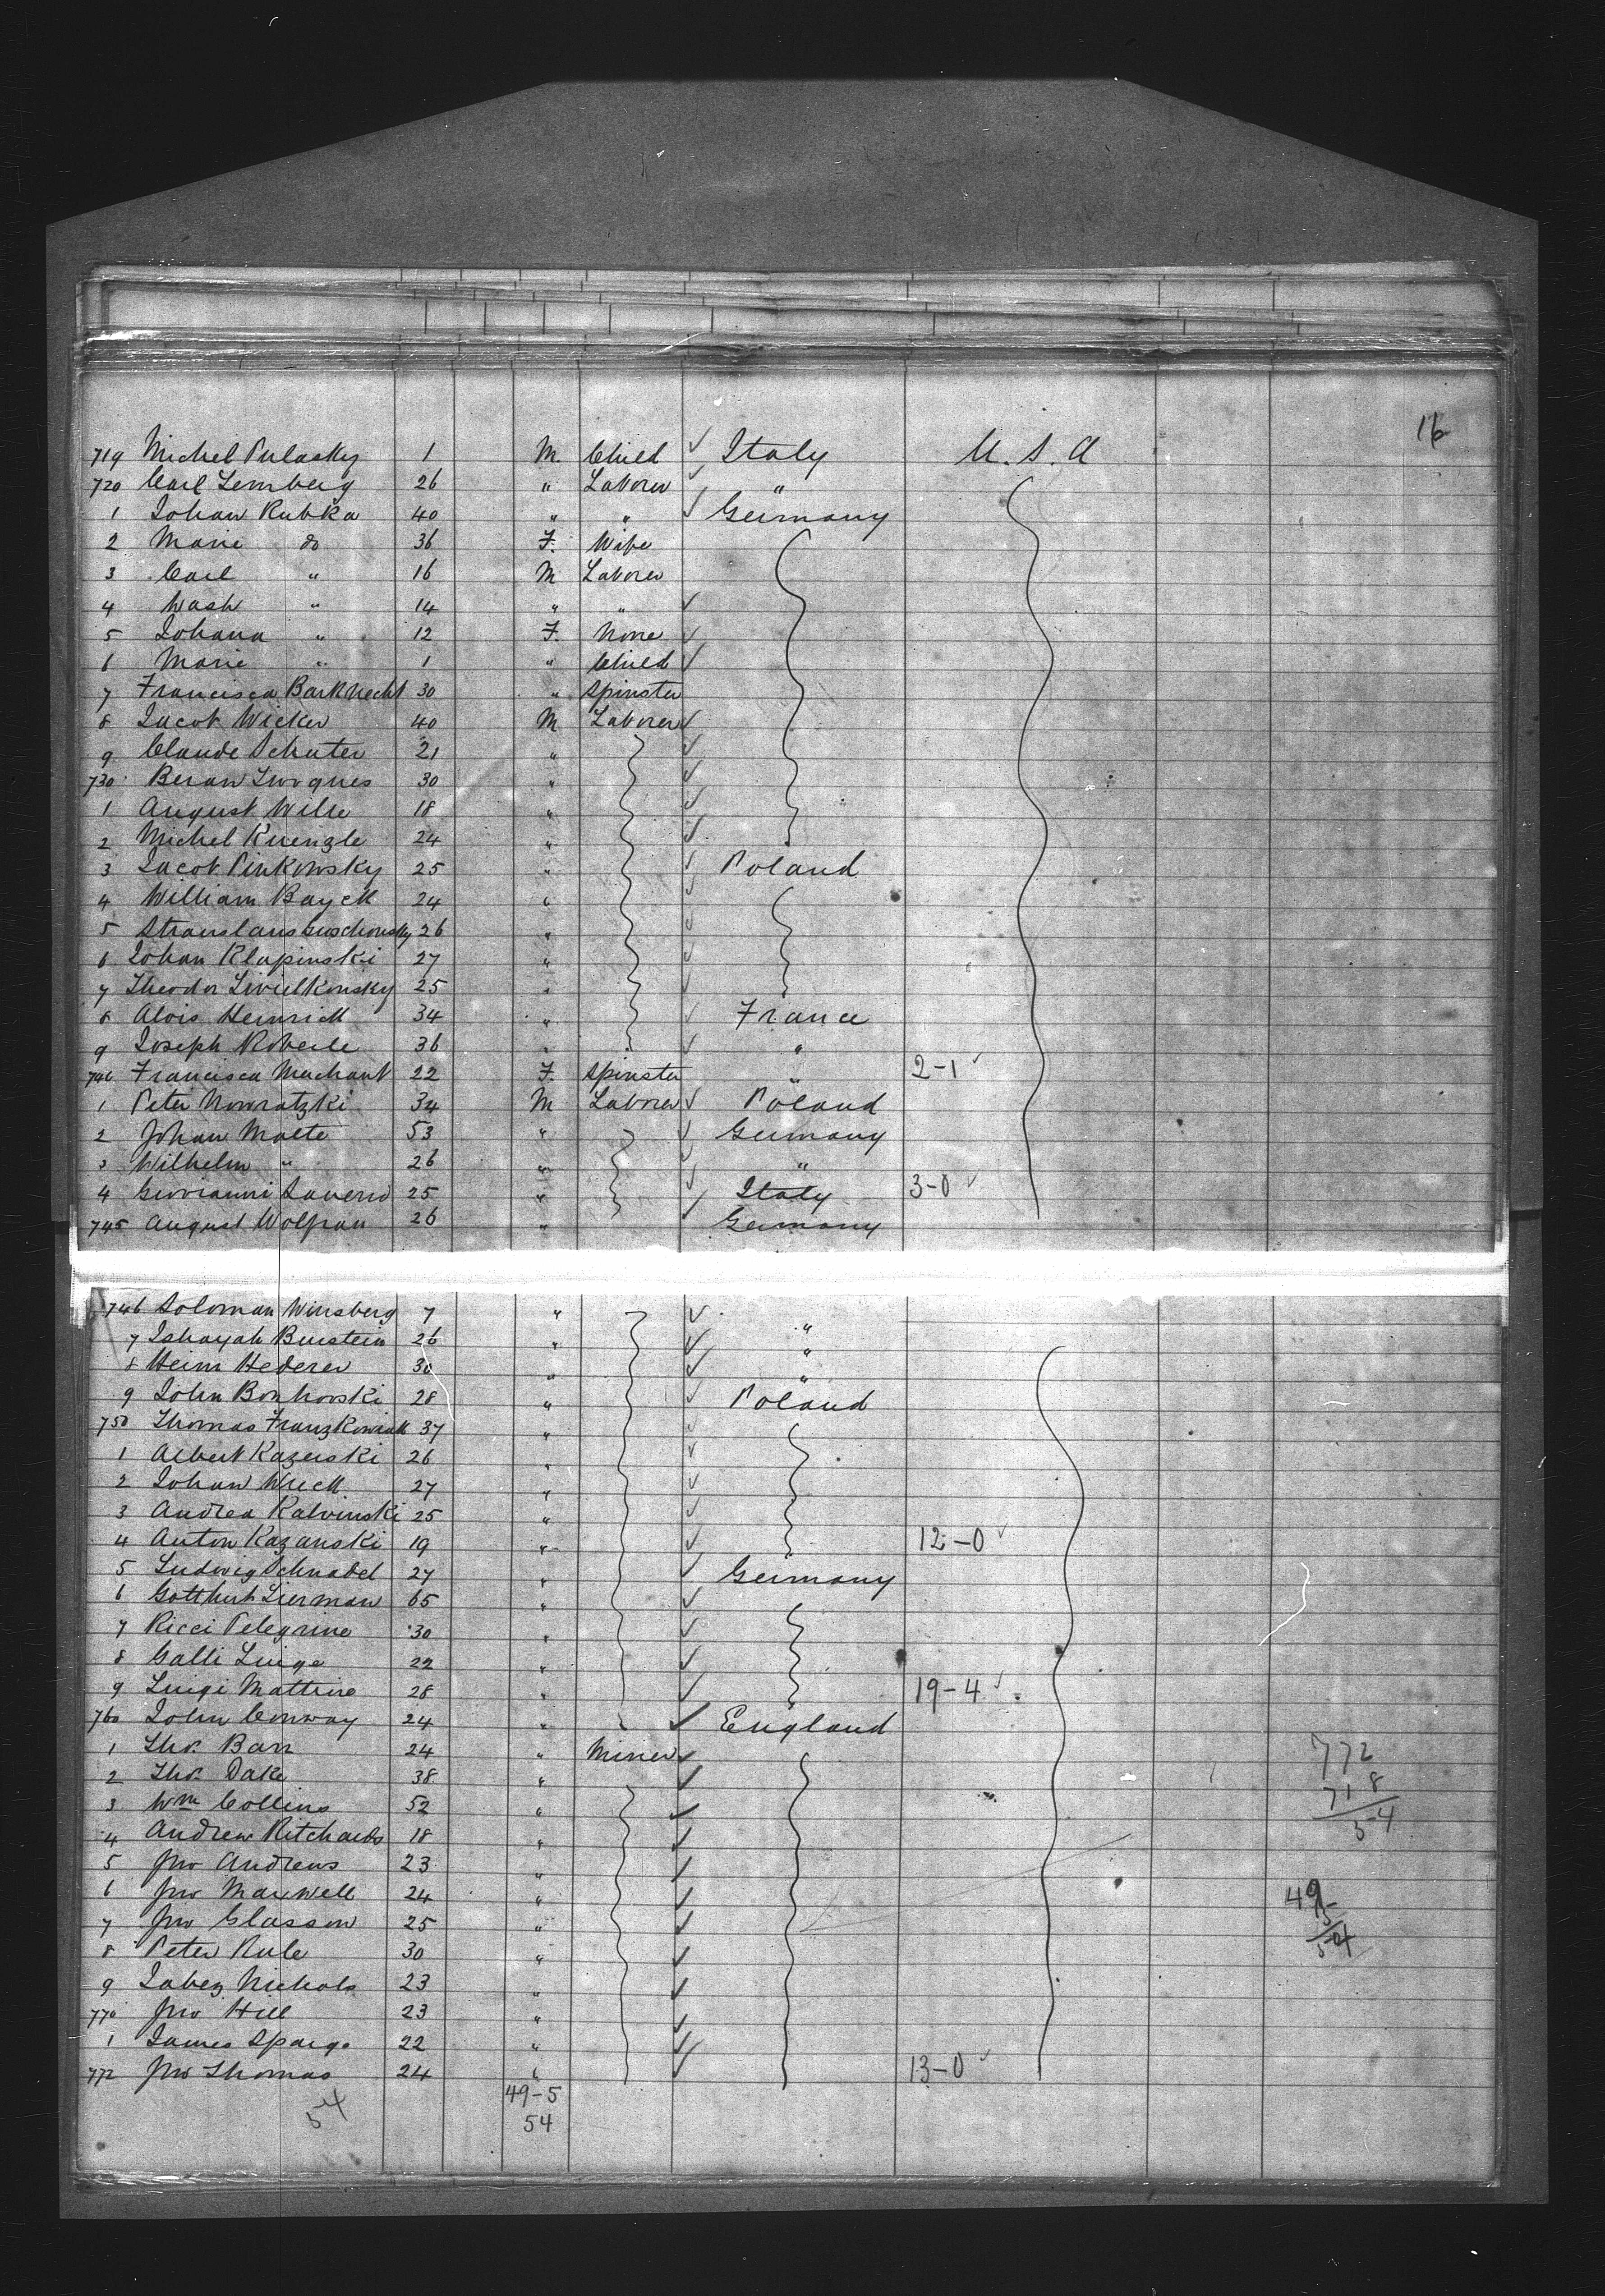 16
719 Michel Pulasky 1 M. Child ✓ Italy U. S. A
720 Carl Lemberg 26 " Laborer ✓ "
1 Johan Rubka 40 " " ✓ Germany
2 Marie do 36 F. Wife
3 Carl " 16 M Laborer
4 Wash " 14 " " ✓
5 Johana " 12 F. None ✓
6 Marie " 1 " Child ✓
7 Francisca Barknecht 30 " Spinster
8 Jacob Wicker 40 M Laborer ✓
9 Claude Schuter 21 " ✓
730 Beran 30 " ✓
1 August Wille 18 " ✓
2 Michel Kuenzle 24 " ✓
3 Jacob Pinkowsky 25 " ✓ Poland
4 William Bayck 24 " ✓
5 26 " ✓
6 Johan Klapinski 27 " ✓
7 Theodor 25 " ✓
8 Alois Heinrich 34 " ✓ France
9 Joseph Roberle 36 " ✓ "
740 Francisca Machant 22 F. Spinster " 2-1 ✓
1 Peter Nowratzki 34 M Laborer ✓ Poland
2 Johan Malte 53 " ✓ Germany
3 Wilhelm " 26 " ✓ "
4 Giovianni Saverio 25 " ✓ Italy 3-0 ✓
745 August Wolfran 26 " Germany
746 Soloman Winsberg 7 " ✓ "
7 Ishayah Burstein 26 " ✓ "
8 Heim Hederer 30 " ✓ "
9 John Bonkovski 28 " ✓ Poland
750 Thomas Franzkowiak 37 " ✓
1 Albert Kazerski 26 " ✓
2 Johan Wreck 27 " ✓
3 Andrea Kalvinski 25 " ✓
4 Anton Kazanski 19 " ✓ 12-0 ✓
5 Ludwig Schnabel 27 " ✓ Germany
6 Lierman 65 " ✓
7 Ricci Pelegrine 30 " ✓
8 Galli Luige 22 " ✓
9 Luigi Mattine 28 " ✓ 19-4 ✓
760 John Conway 24 " ✓ England
1 Tho. Barr 24 " Miner ✓ 772
2 Tho. Dake 38 " ✓ 718
3 Wm Collins 52 " ✓ 54
4 Andrew Ritchards 18 " ✓
5 Jno Andrews 23 " ✓
6 Jno Maxwell 24 " ✓ 49
7 Jno Glasson 25 " ✓ 5
8 Peter Rule 30 " ✓ 54
9 Jabez Nichols 23 " ✓
770 Jno Hill 23 " ✓
1 James Spargo 22 " ✓
772 Jno Thomas 24 " ✓ 13-0 ✓
49-5
54 54